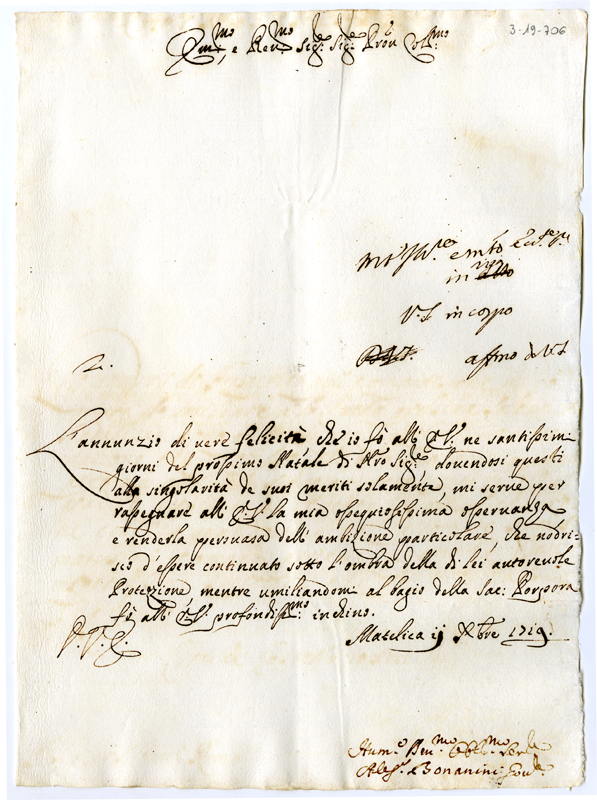 3-19-706
Em.mo, e Rev.mo Sig.r Sig.r Pron Col.mo
in
V.S. in corpo
affmo di V.S.
L'annunzio di vere felicità che io fò all' E.V. ne santissimi
giorni del prossimo Natale di Nro Sig.re dovendosi questi
alla singolarità de suoi meriti solamente, mi serve per
rasegnare all' E.V. la mia ossequiosissima osservanza
e renderla persuasa dell' ambizione particolare, che nodri-
sco d'essere continuato sotto l'ombra della di lei autorevole
Protezione, mentre umiliandomi al bagio della Sac: Porpora
fò all' E.V. profondiss.mo inchino.
Matelica ij Xbre 1719.
Hum.o Dev.mo Obbl.mo
Bonanini